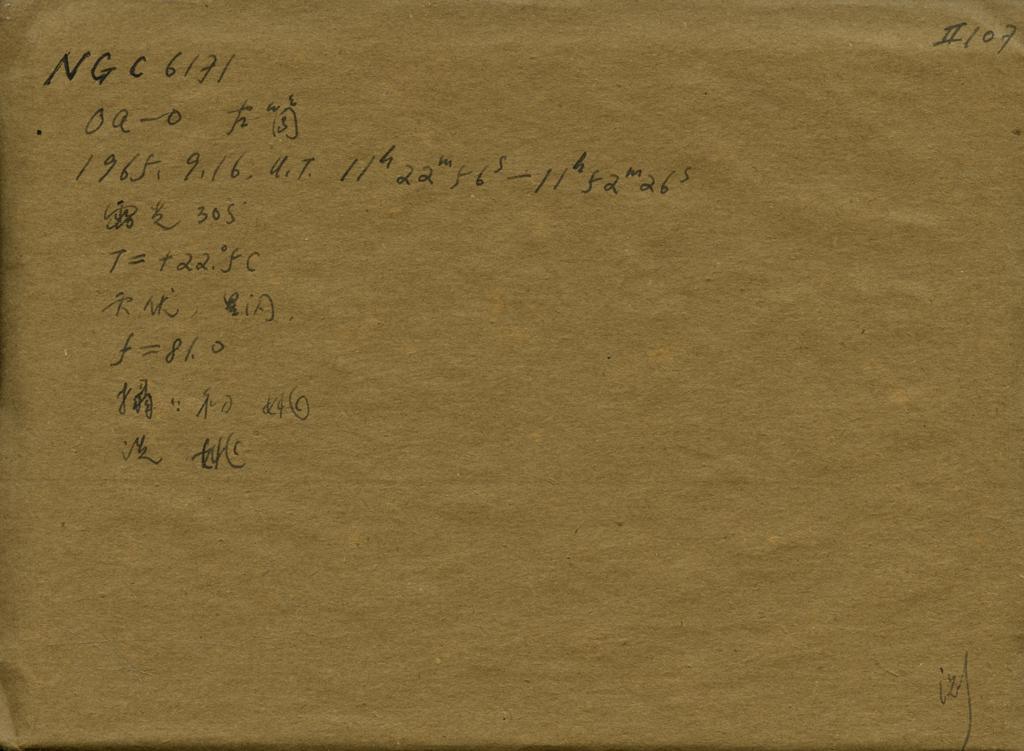 II107
NGC 6171
Oa-O 左筒
1965. 9.16. U.T. 11ʰ22ᵐ56ˢ-11ʰ52ᵐ26ˢ
露光 30S
T=+22.°5C
天优, 星闪.
f=81.0
摄:
洗 姚
测